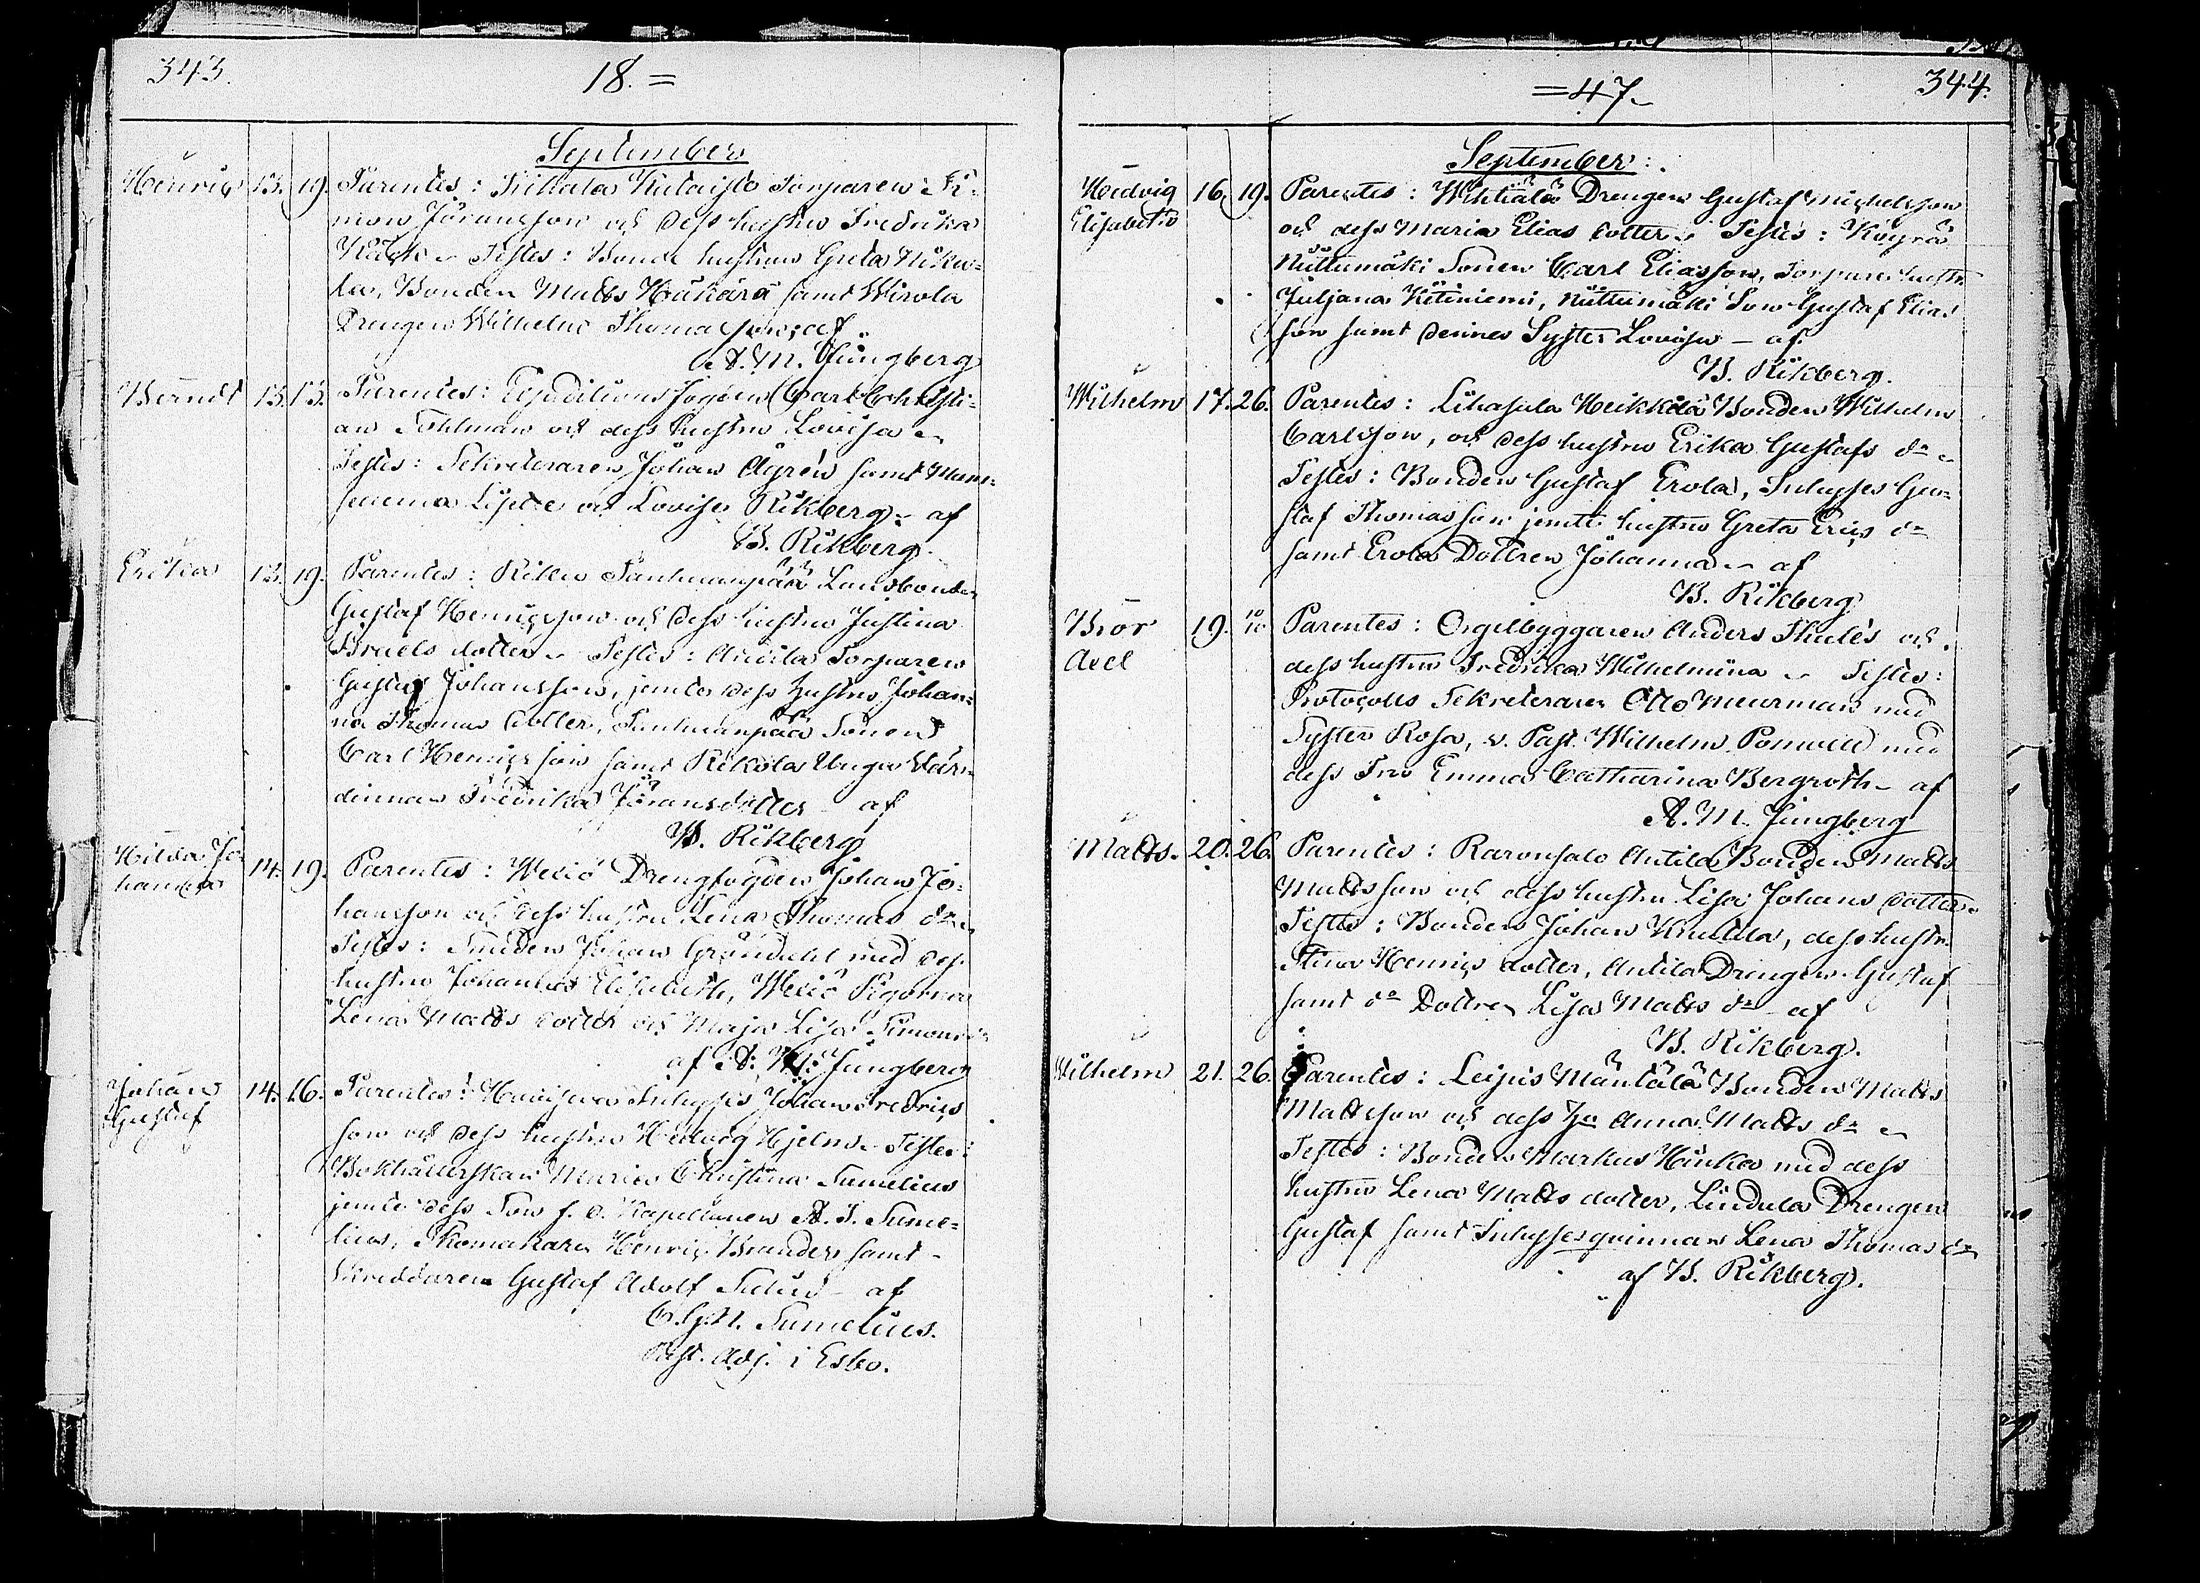 343.
18. =
September
Henric 13. 19. Parentes: Sittala Torparen Si-
mon Jöransson och dess hustru Fredrika
Testes: Bonde hustrun Greta
Bonden Matts samt Wirola
Drengen Wilhelm Thomasson; af
A. M. Ljungberg
Berndt 13. 13. Parentes: Expeditions fogden Carl Christi-
an Tohlman och dess hustru Lovisa
Testes: Sekreteraren Johan samt Mam-
och Lovisa Rikberg - af
B. Rikberg.
Erika 13. 19. Parentes: Landbonden
Gustaf Henricsson och dess hustru Justina
Israels dotter. Testes: Torparen
Gustaf Johansson, jemte dess hustru Johan-
na Thomas dotter, Sonen
Carl Henricsson samt Rikola Unga Wär-
dinnan Fredrika Jöransdotter af
B. Rikberg
Hilda Jo-
hanna 14. 19. Parentes: Wexiö Drengfogden Johan Jo-
hansson och dess hustru Lena Thomas dr
Testes: Smeden Johan Gröndahl med dess
hustru Johanna Elisabeth, Wexiö Pigorna
Lena Matts dotter och Maja Lisa Simons
af A. M. Ljungberg
Johan
Gustaf 14. 16. Parentes: Inhyses Johan Fredrics
son och dess hustru Hedvig Hjelm. Testes:
Bokhållerskan Maria Christina Sumelius
jemte dess Son f. d. Kapellanen A. J. Sume-
lius, Skomakaren Henric Brander samt
Skreddaren Gustaf Adolf - af
C. G. N. Sumelius.
Past. Adj. i Esbo.
= 47.
344.
September:
Hedvig
Elisabeth 16. 19. Parentes: Drengen Gustaf Michelsson
och dess Maria Elias dotter. Testes: Köyrä
Niittumäki Sonen Carl Eliasson, Torpare hustr.
Juljana Ketiniemi, Niittumäki Son Gustaf Elias
son samt dennes Syster Lovisa - af
B. Rikberg.
Wilhelm 17. 26. Parentes: Lihasula Heikkilä Bonden Wilhelm
Carlsson, och dess hustru Erika Gustafs dr
Testes: Bonden Gustaf Erola, Inhyses Gu-
staf Thomasson jemte hustru Greta Erics dr
samt Erola Dottren Johanna - af
B. Rikberg
Bror
Axel 19. 10/10 Parentes: Orgelbyggaren Anders Thulé och
dess hustru Fredrika Wilhelmina - Testes:
Protocolls Sekreteraren Otto Meurman med
Syster Rosa, v. Past. Wilhelm Ponwell med
dess Fru Emma Catharina Bergroth - af
A. M. Ljungberg
Matts. 20. 26. Parentes: Raronsalo Antila Bonden Matts
Mattsson och dess hustru Lisa Johans dotter.
Testes: Bonden Johan Knuttila, dess hustr.
Stina Henrics dotter, Antila Drengen Gustaf
samt do Dottren Lisa Matts dr - af
B. Rikberg.
Wilhelm 21. 26. Parentes: Leipis Mäntälä Bonden Matts
Mattsson och dess hu Anna Matts dr
Testes: Bonden Markus Hauka med dess
hustru Lena Matts dotter, Lindula Drengen
Gustaf samt Inhysesquinnan Lena Thomas dr
af B. Rikberg.